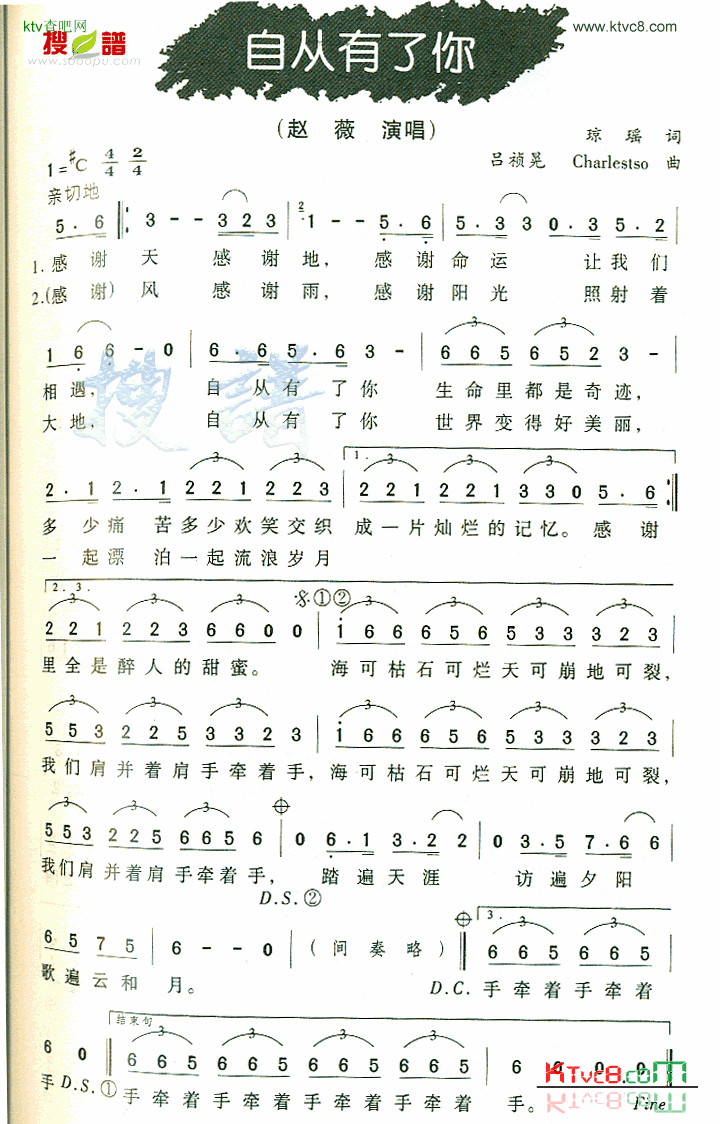 ktv查吧网
www.ktvc8.com
搜谱
www.sooopu.com
自从有了你
(赵 薇 演唱)
琼 瑶 词
1=#C 4/4 2/4
吕祯晃 Charlestso 曲
亲切地
5.6 3 - - 3 2 3 2 1 - - 5.6 5.3 3 0.3 5.2
1.感谢天 感谢地, 感谢命运 让我们
2.(感谢)风 感谢雨, 感谢阳光 照射着
1 6 6 - 0 6.6 5.6 3 - 6 6 5 6 5 2 3 -
相遇, 自从有了你 生命里都是奇迹,
大地, 自从有了你 世界变得好美丽,
搜譜
1.
2.1 2.1 2 2 1 2 2 3 2 2 1 2 2 1 3 3 0 5.6
多少痛苦多少欢笑交织成一片灿烂的记忆。感谢
一起漂泊一起流浪岁月
2.3.
𝄋①②
2 2 1 2 2 3 6 6 0 0 1 6 6 6 5 6 5 3 3 3 2 3
里全是醉人的甜蜜。 海可枯石可烂天可崩地可裂,
5 5 3 2 2 5 3 3 2 3 1 6 6 6 5 6 5 3 3 3 2 3
我们肩并着肩手牵着手,海可枯石可烂天可崩地可裂,
5 5 3 2 2 5 6 6 5 6 0 6.1 3.2 2 0 3.5 7.6 6
我们肩并着肩手牵着手, 踏遍天涯 访遍夕阳
D.S.②
3.
6 5 7 5 6 - - 0 (间奏略) 6 6 5 6 6 5
歌遍云和月。 D.C.手牵着手牵着
结束句
6 0 6 6 5 6 6 5 6 6 5 6 6 5 6 0 0 0
手D.S.① 手牵着手牵着手牵着手牵着 手。 Fine
KTvc8.com